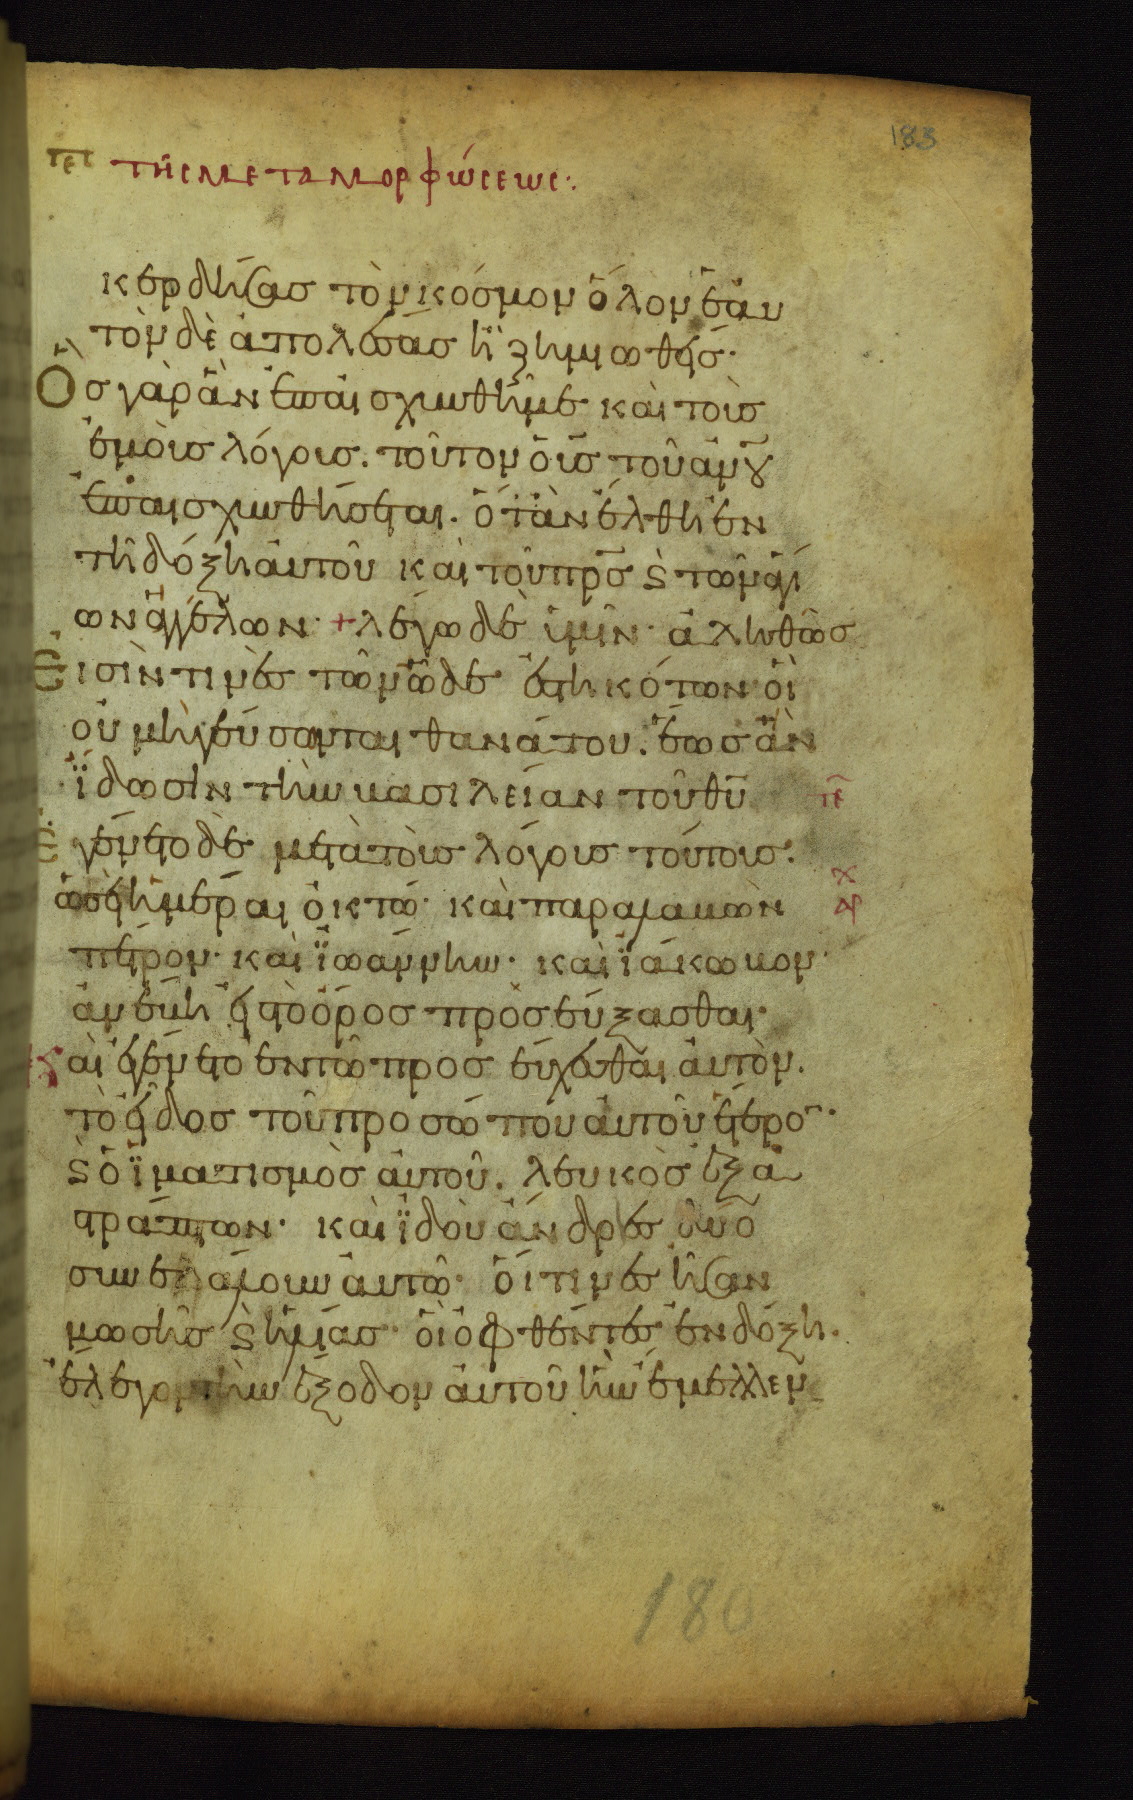 183
πε τῆς μεταμορφώσεως·
κερδήσας τὸν κόσμον ὅλον ἑαυ
τὸν δὲ ἀπολέσας ἢ ζημιωθείς·
Ὃς γὰρ ἂν ἐπαισχυνθῆ με καὶ τοὺς
ἐμοὺς λόγους. τοῦτον ὁ υἱς τοῦ ἀνου
ἐπαισχυνθήσεται. ὅταν ἔλθη ἐν
τῆ δόξη αὐτοῦ καὶ τοῦ πρς καὶ τῶν ἁγί
ων ἀγγέλων· + λέγω δὲ ὑμῖν· ἀληθῶς
Εἰσὶν τινὲς τῶν ὧδε ἑστηκότων οἳ
οὐ μὴ γεύσονται θανάτου. ἕως ἂν
ἴδωσιν τὴν βασιλείαν τοῦ θυ
Ἐγένετο δὲ μετὰ τοὺς λόγους τούτους.
ὡσεὶ ἡμέραι ὀκτώ· καὶ παραλαβὼν
πέτρον· καὶ ἰωάννην· καὶ ἰάκωβον·
ἀνέβη εἰς τὸ ὄρος προσεύξασθαι·
Καὶ ἐγένετο ἐν τῶ προσεύχεσθαι αὐτὸν.
τὸ εἶδος τοῦ προσώπου αὐτοῦ ἕτερον·
καὶ ὁ ἱματισμὸς αὐτοῦ. λευκὸς ἐξα
στράπτων· καὶ ἰδοὺ ἄνδρες δύο
συνελάλουν αὐτῶ· οἵτινες ἦσαν
μωσῆς καὶ ἠλίας· οἳ ὀφθέντες ἐν δόξη.
ἔλεγον τὴν ἔξοδον αὐτοῦ ἣν ἔμελλεν
180